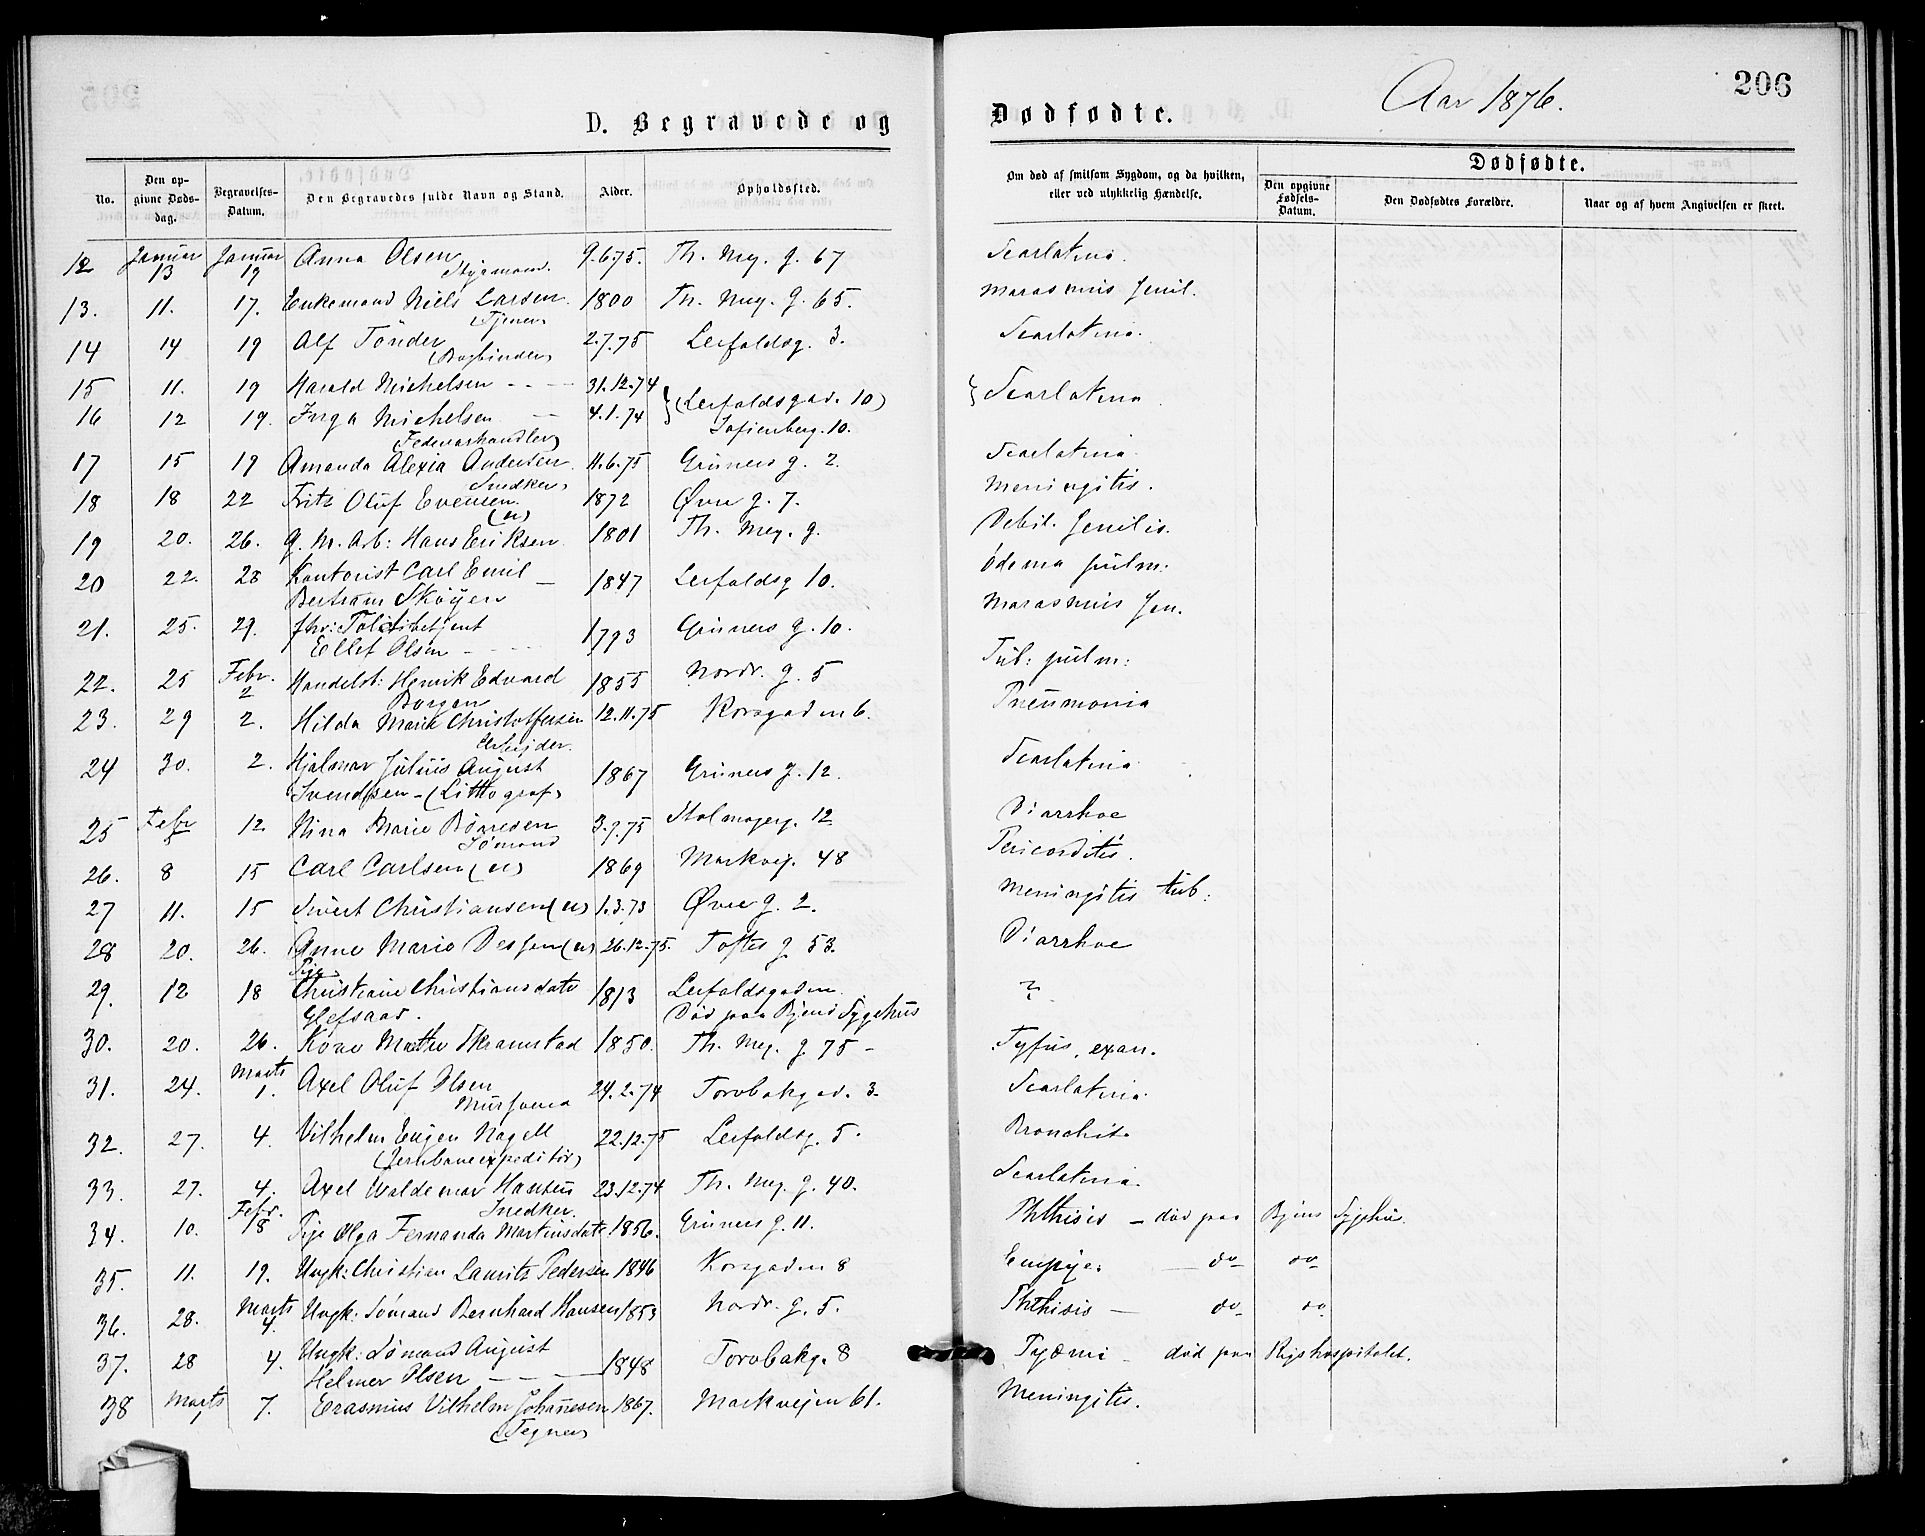 206
Aar 1876.
D. Begravede og Dødfødte.
No. Den opgivne Dødsdag. Begravelses-Datum. Den Begravedes fulde Navn og Stand. Alder. Opholdssted. Om død af smitsom Sygdom, og da hvilken, eller ved ulykkelig Hændelse. Dødfødte. Den opgivne Fødsels-Datum. Den Dødfødtes Forældre. Naar og af hvem Angivelsen er skeet.
12 Januar 13 Januar 19 Anna Olsen 9.6.75. Th. Mey. g. 67 Scarlatina.
Styrmand.
13. 11. 17. Enkemand Niels Larsen 1800 Th. Mey. g. 65. Marasmus senil.
(Tjener)
14 14 19 Alf Tönder 2.7.75 Leifaldsg. 3. Scarlatina.
(Bogbinder)
15 11. 19 Harald Michelsen - - - 31.12.74
16 12 19. Inga Michelsen - 4.1.74 } (Leifaldsgad. 10) { Scarlatina
Fedevarhandler) Sofienberg. 10.
17 15 19 Amanda Alexia Andersen 11.6.75 Grüners g. 2. Scarlatina.
Snedker)
18 18 22 Fritz Oluf Evensen 1872 Øvre g. 7. Meningitis.
(u)
19 20. 26. g. M. Arb: Hans Eriksen 1801 Th. Mey. g. Debil. senilis.
20 22. 28 Kontorist Carl Emil - 1847 Leifaldsg 10. Ödema pulm.
Bertram Sköyen
21. 25. 29. fhv: Politibetjent 1793 Grüners g. 10. Marasmus sen.
Ellef Olsen - - - -
22. 25 Febr. 2 Handelsb: Henrik Edvard 1855 Nordr. g. 5 Tub: pulm:
Borgen
23. 29 2. Hilda Marie Christoffersen 12.11.75 Korsgaden 6. Pneumonia
Arbejder.
24 30. 2. Hjalmar Julius August 1867 Grüners g. 12. Scarlatina
Svendsen - (Litthograf)
25 Febr 12 Nina Marie Börresen 3.9.75 Stolmagerg. 12 Diarrhoe
Sömand
26. 8 15 Carl Carlsen (u) 1869 Markvej. 48 Pericarditis.
27 11. 15 Sivert Christiansen (u) 1.3.73 Øvre g. 2. Meningitis tub:
28 20. 26. Anne Marie (u) 26.12.75. Toftes g 53. Diarrhoe
29. 12 18 Pige Christiane Christiansdatr 1813 Leifaldsgaden ?
Glefsaas. Død paa Byens Sygehus
30. 20. 26. Kone Mathe Skramstad 1850. Th. Mey. g. 75 - Tyfus, exan.
31. 24. Marts 1. Axel Oluf Olsen 24.2.74 Torvbakgad. 3. Scarlatina
Mursvend
32. 27. 4. Vilhelm Eugen Nagell 22.12.75 Leifaldsg. 5. Bronchit.
(Jernbaneexpeditör)
33. 27. 4. Axel Waldemar Hansen 23.12.74 Th. Mey. g. 40. Scarlatina.
Snedker.
34. 10. Febr. 18 Pige Olga Fernanda Martinsdatr 1856. Grüners g. 11. Phthisis - död paa Byens Sygehus.
35. 11. 19. Ungk: Christian Laurits Pedersen 1846 Korsgaden 8 Empye. - do do
36. 28. Marts 4. Ungk: Sömand Bernhard Hansen 1853 Nordr. g. 5. Phthisis - do do
37. 28 4. Ungk: Sömand August 1848 Torvbakg. 8 Pyæmi - död paa Rigshospitalet.
Helmer Olsen - - -
38 Marts 1 7. Erasmus Vilhelm Johannesen 1867. Markvejen 61. Meningitis.
(Tegner)